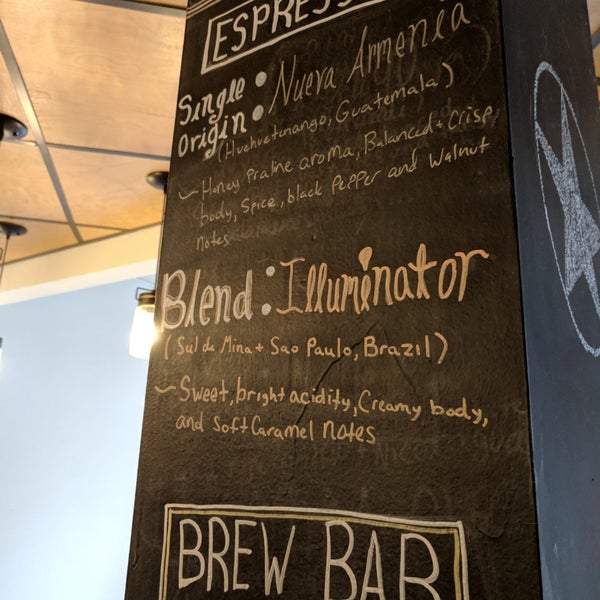 ESPRESSO
Single Origin: Nueva Armenia
(Huehuetenango, Guatemala)
~ Honey Praline aroma, Balanced + Crisp
body, Spice, black Pepper and Walnut
notes
Blend: Illuminator
(Sul de Mina + Sao Paulo, Brazil)
~ Sweet, bright acidity, Creamy body,
and Soft Caramel notes
BREW BAR